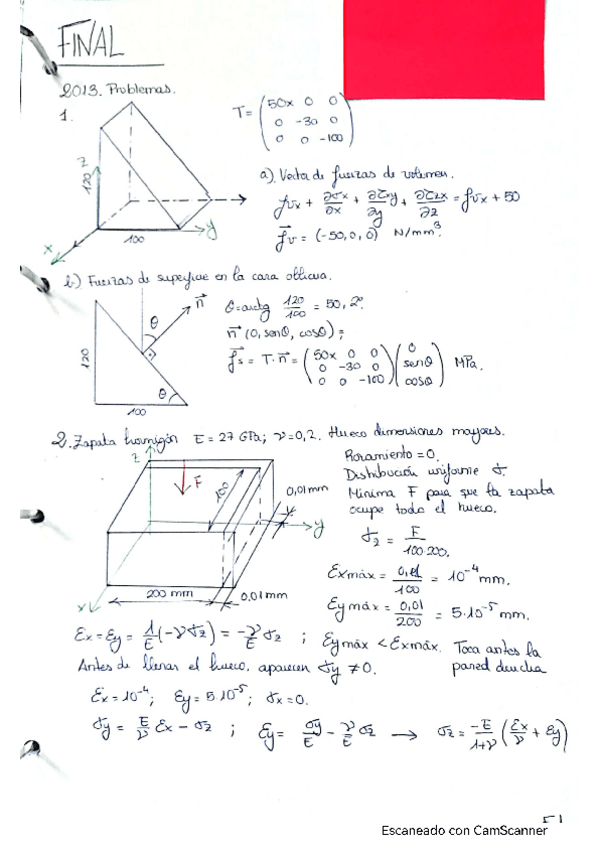 FINAL
2013. Problemas.
1.
T = (50x 0 0
0 -30 0
0 0 -100)
z
120
x
100
y
a) Vector de fuerzas de volumen.
fvx + ∂σx/∂x + ∂τxy/∂y + ∂τzx/∂z = fvx + 50
f⃗v = (-50,0,0) N/mm³.
b) Fuerzas de superficie en la cara oblicua.
n⃗
θ
120
θ
100
θ = arctg 120/100 = 50,2º
n⃗ (0, senθ, cosθ);
f⃗s = T·n⃗ = (50x 0 0
0 -30 0
0 0 -100) (0
senθ
cosθ) MPa.
2. Zapata hormigón E = 27 GPa; ν = 0,2. Hueco dimensiones mayores.
z
F
100
0,01 mm
y
x
200 mm
0,01 mm
Rozamiento = 0.
Distribución uniforme σ.
Mínima F para que la zapata
ocupe todo el hueco.
σz = F/100·200.
Exmáx = 0,01/100 = 10⁻⁴ mm.
Eymáx = 0,01/200 = 5·10⁻⁵ mm.
Ex = Ey = 1/E (-νσz) = -ν/E σz ; Eymáx < Exmáx. Toca antes la
pared derecha
Antes de llenar el hueco, aparecen σy ≠ 0.
Ex = 10⁻⁴; Ey = 5·10⁻⁵; σx = 0.
σy = E/ν Ex - σz ; Ey = σy/E - ν/E σz → σz = -E/1+ν (Ex/ν + Ey)
Escaneado con CamScanner